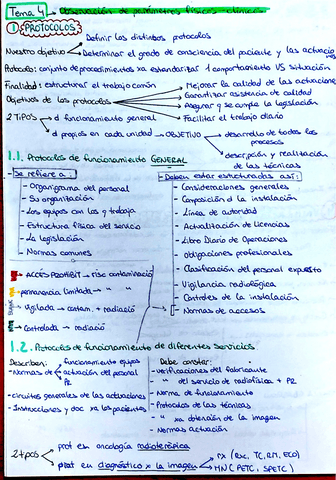 Tema 4: Observación de parámetros físicos-clínicos
① PROTOCOLOS
Nuestro objetivo
Definir los distintos protocolos
Determinar el grado de consciencia del paciente y las actuaciones
Protocolo: conjunto de procedimientos xa estandarizar 1 comportamiento VS situación
Finalidad: estructurar el trabajo común
Objetivos de los protocolos
Mejorar la calidad de las actuaciones
Garantizar asistencia de calidad
Asegurar q se cumple la legislación
Facilitar el trabajo diario
2 TiPOS
d funcionamiento general
d propios en cada unidad → OBJETIVO
desarrollo de todos los procesos
descripción y realización de las técnicas
1.1. Protocolos de funcionamiento GENERAL
- Se refiere a:
- Organigrama del personal
- Su organización
- Los equipos con los q trabaja
- Estructura física del servicio
- La legislación
- Normas comunes
- Deben estar estructurados así:
- Consideraciones generales
- Composición d la instalación
- Línea de autoridad
- Actualización de Licencias
- Libro Diario de Operaciones
- Obligaciones profesionales
- Clasificación del personal expuesto
- Vigilancia radiológica
- Controles de la instalación
- Normas de accesos
ACCÉS PROHIBIT → risc contaminació
permanencia limitada → " "
Vigilada → contam. + radiació
Controlada → radiació
1.2. Protocolos de funcionamiento de diferentes servicios
Describen:
- Normas de
funcionamiento equipos
actuación del personal
P2
- circuitos generales de las actuaciones
- Instrucciones y doc xa los pacientes
Debe constar:
- verificaciones del fabricante
- " del servicio de radiofísica + P2
- Norma de funcionamiento
- Protocolos de las técnicas
- " xa obtención de la imagen
- Normas actuación
2 tipos
prot en oncología radioterápica
prot en diagnóstico x la imagen
RX (esc, TC, RM, ECO)
MN (PETC, SPETC)